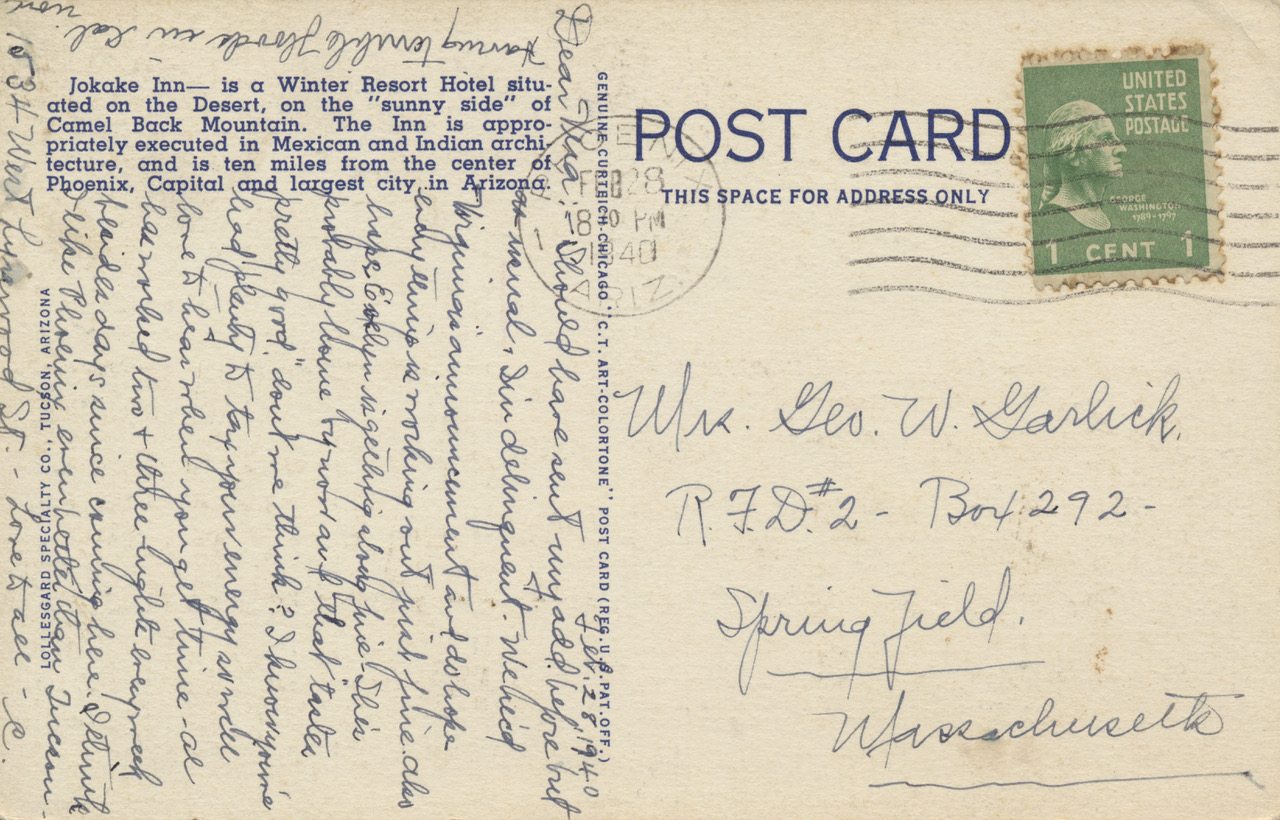 Having terrible floods in Cal. now.
Jokake Inn— is a Winter Resort Hotel situ-
ated on the Desert, on the "sunny side" of
Camel Back Mountain. The Inn is appro-
priately executed in Mexican and Indian archi-
tecture, and is ten miles from the center of
Phoenix, Capital and largest city in Arizona.
LOLLESGARD SPECIALTY CO., TUCSON, ARIZONA
GENUINE CURTEICH-CHICAGO "C.T. ART-COLORTONE" POST CARD (REG. U.S. PAT. OFF.)
POST CARD
THIS SPACE FOR ADDRESS ONLY
PHOENIX
FEB 28
8 PM
1940
ARIZ.
UNITED
STATES
POSTAGE
GEORGE
WASHINGTON
1789-1797
1 CENT 1
Feb. 28, 1940
Dear : Should have sent my add. before but
as usual, I'm delinquent. We rec'd
Virginia's announcement and do hope
everything is working out just fine. also
hope Evelyn is getting along fine. She's
probably home by now and "that" tastes
pretty good, "don't me think"? I know you're
had plenty to tax your energy so will
love to hear when you get time - Al
has worked two & three nights every week
besides days since coming here. I think
I like Phoenix even better than Tucson -
1534 West Lynwood St. - Love to all - C.
Mrs. Geo. W. Garlick.
R.F.D. #2 - Box 292 -
Springfield.
Massachusetts